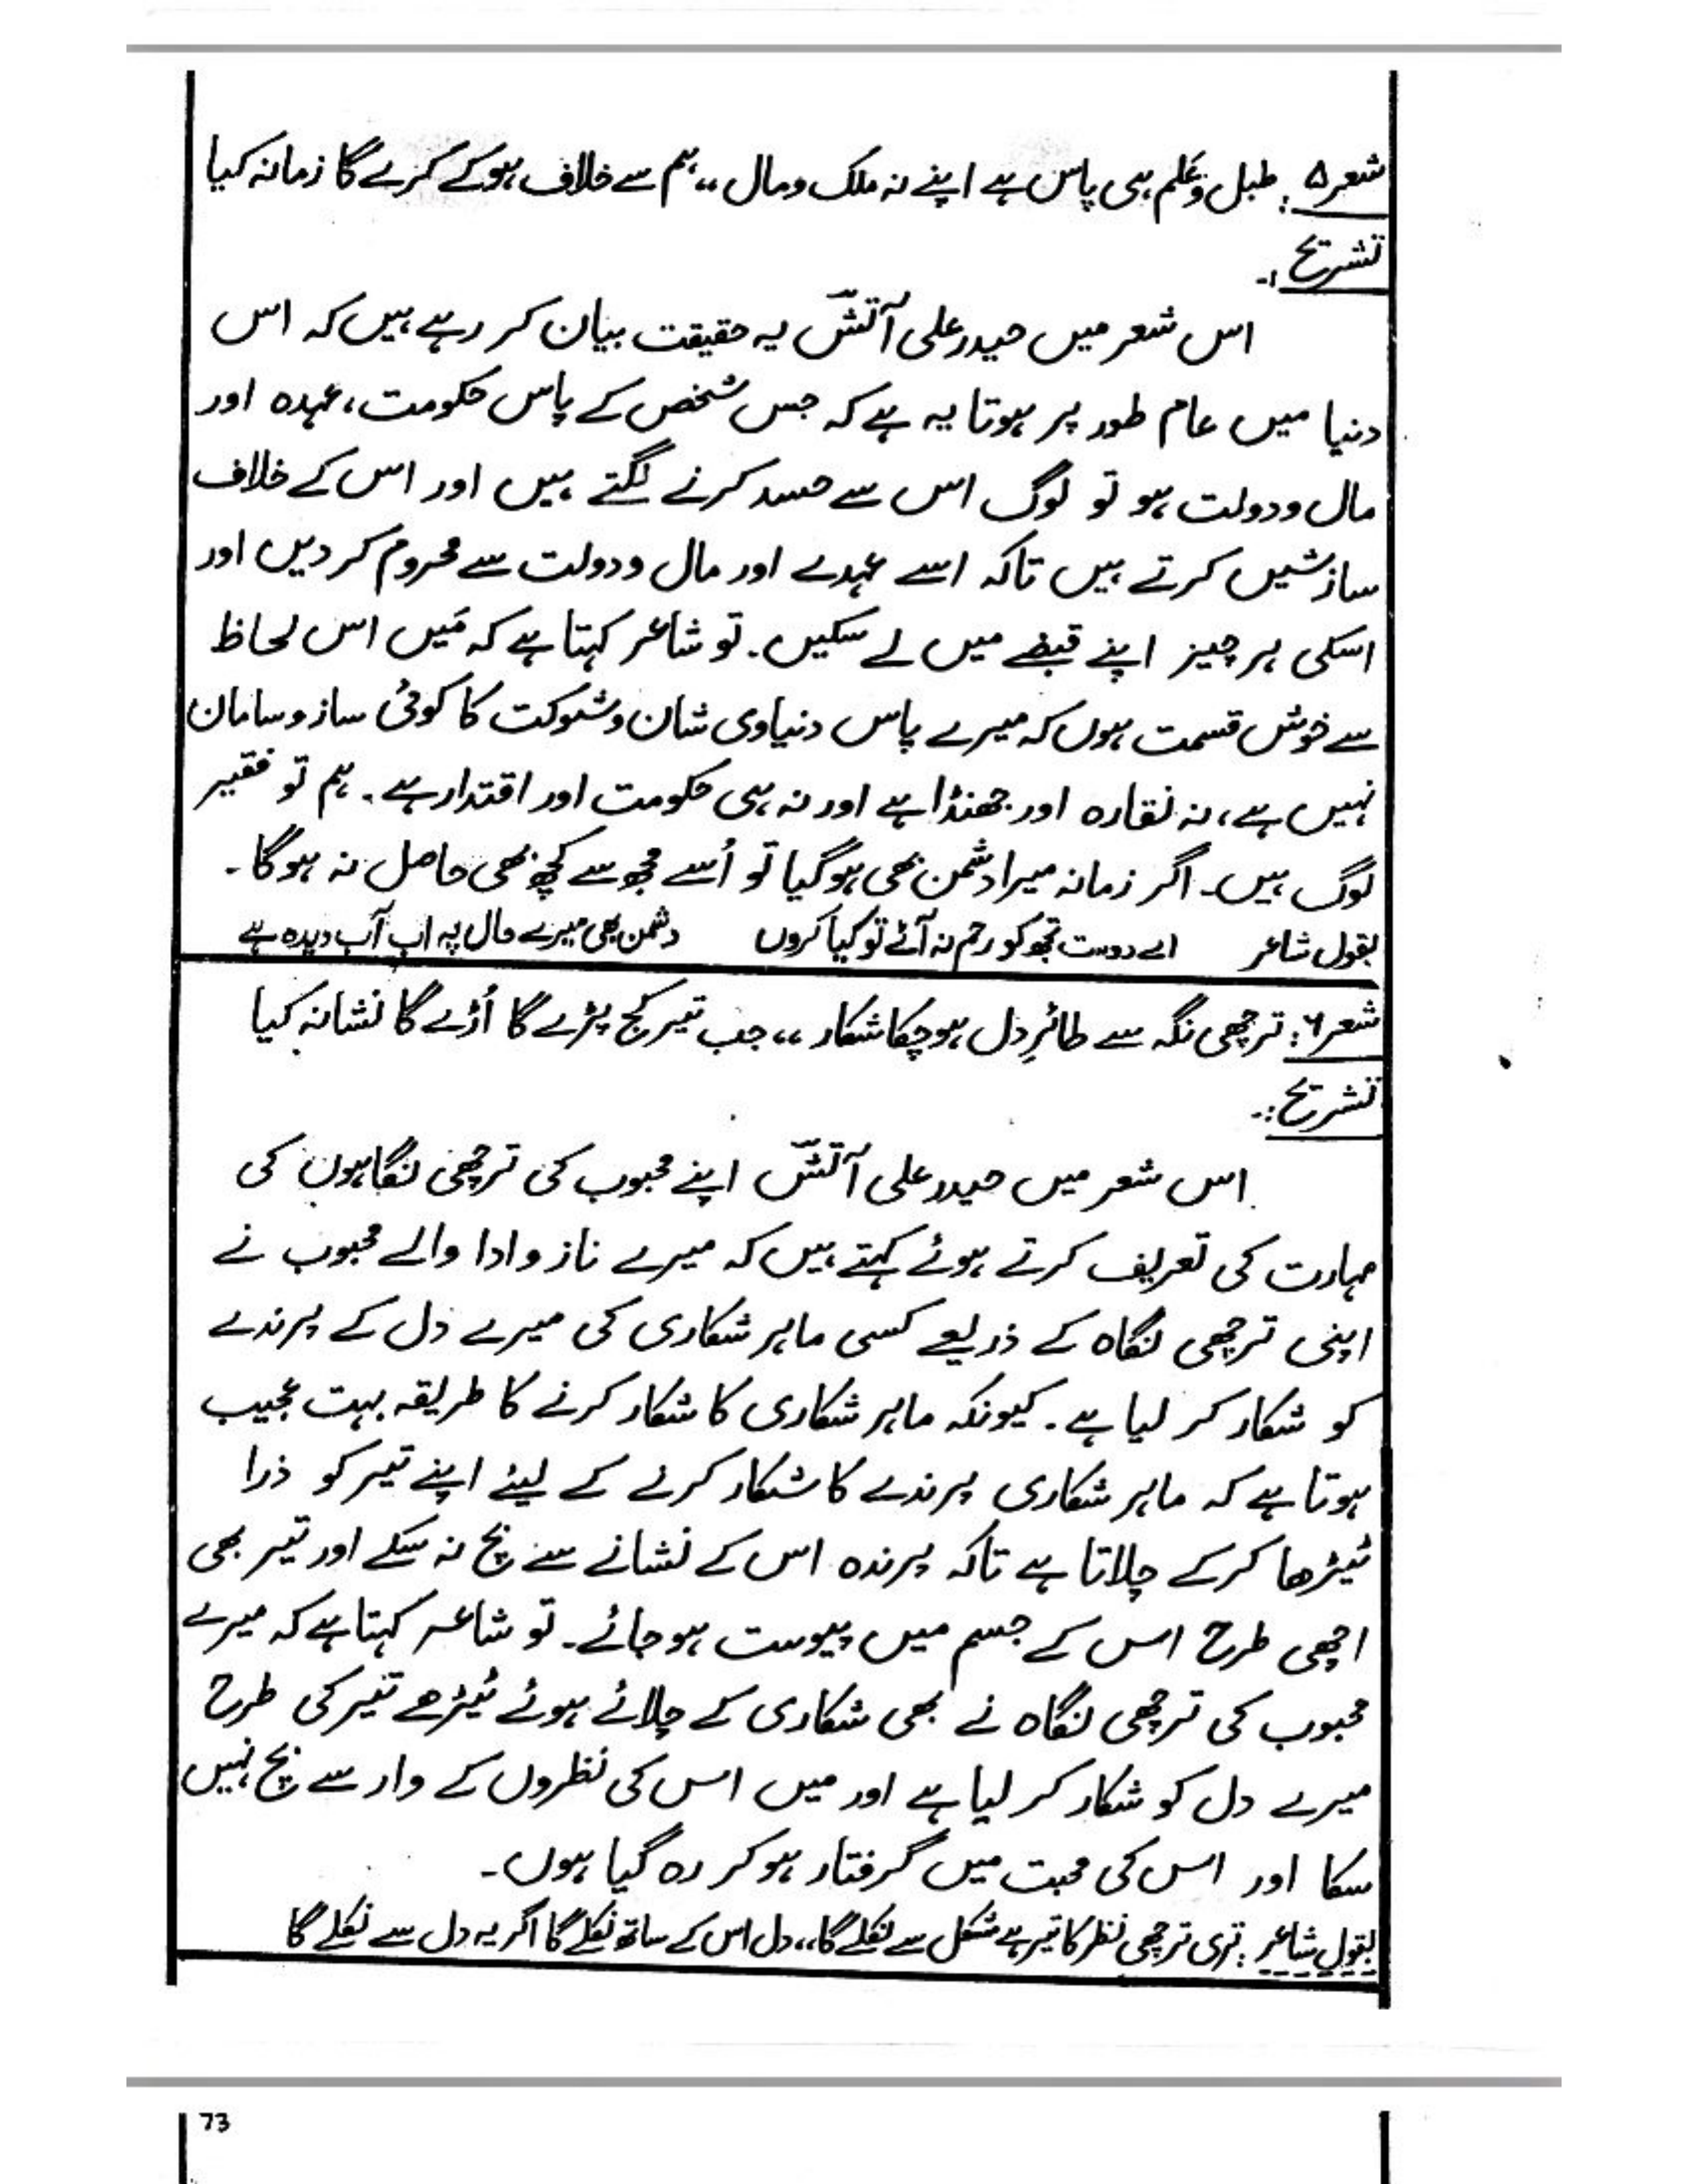 شعر ۵: طبل و عَلم ہی پاس ہے اپنے نہ ملک و مال ،، ہم سے خلاف ہو کے کرے گا زمانہ کیا
تشریح :-
اس شعر میں حیدر علی آتشؔ یہ حقیقت بیان کر رہے ہیں کہ اس
دنیا میں عام طور پر ہوتا یہ ہے کہ جس شخص کے پاس حکومت، عہدہ اور
مال و دولت ہو تو لوگ اس سے حسد کرنے لگتے ہیں اور اس کے خلاف
سازشیں کرتے ہیں تاکہ اسے عہدے اور مال و دولت سے محروم کر دیں اور
اسکی ہر چیز اپنے قبضے میں لے سکیں۔ تو شاعر کہتا ہے کہ مَیں اس لحاظ
سے خوش قسمت ہوں کہ میرے پاس دنیاوی شان و شوکت کا کوئی ساز و سامان
نہیں ہے، نہ نقارہ اور جھنڈا ہے اور نہ ہی حکومت اور اقتدار ہے۔ ہم تو فقیر
لوگ ہیں۔ اگر زمانہ میرا دشمن بھی ہو گیا تو اُسے مجھ سے کچھ بھی حاصل نہ ہوگا۔
بقول شاعر اے دوست تجھ کو رحم نہ آئے تو کیا کروں دشمن بھی میرے حال پہ اب آب دیدہ ہے
شعر ۶: ترچھی نگہ سے طائرِ دل ہو چکا شکار ،، جب تیر کج پڑے گا اُڑے گا نشانہ کیا
تشریح :-
اس شعر میں حیدر علی آتشؔ اپنے محبوب کی ترچھی نگاہوں کی
مہارت کی تعریف کرتے ہوئے کہتے ہیں کہ میرے ناز و ادا والے محبوب نے
اپنی ترچھی نگاہ کے ذریعے کسی ماہر شکاری کی میرے دل کے پرندے
کو شکار کر لیا ہے۔ کیونکہ ماہر شکاری کا شکار کرنے کا طریقہ بہت عجیب
ہوتا ہے کہ ماہر شکاری پرندے کا شکار کرنے کے لیئے اپنے تیر کو ذرا
ٹیڑھا کرکے چلاتا ہے تاکہ پرندہ اس کے نشانے سے بچ نہ سکے اور تیر بھی
اچھی طرح اس کے جسم میں پیوست ہو جائے۔ تو شاعر کہتا ہے کہ میرے
محبوب کی ترچھی نگاہ نے بھی شکاری کے چلائے ہوئے ٹیڑھے تیر کی طرح
میرے دل کو شکار کر لیا ہے اور میں اس کی نظروں کے وار سے بچ نہیں
سکا اور اس کی محبت میں گرفتار ہو کر رہ گیا ہوں۔
بقول شاعر: تری ترچھی نظر کا تیر ہے مشکل سے نکلے گا ،، دل اس کے ساتھ نکلے گا اگر یہ دل سے نکلے گا
73